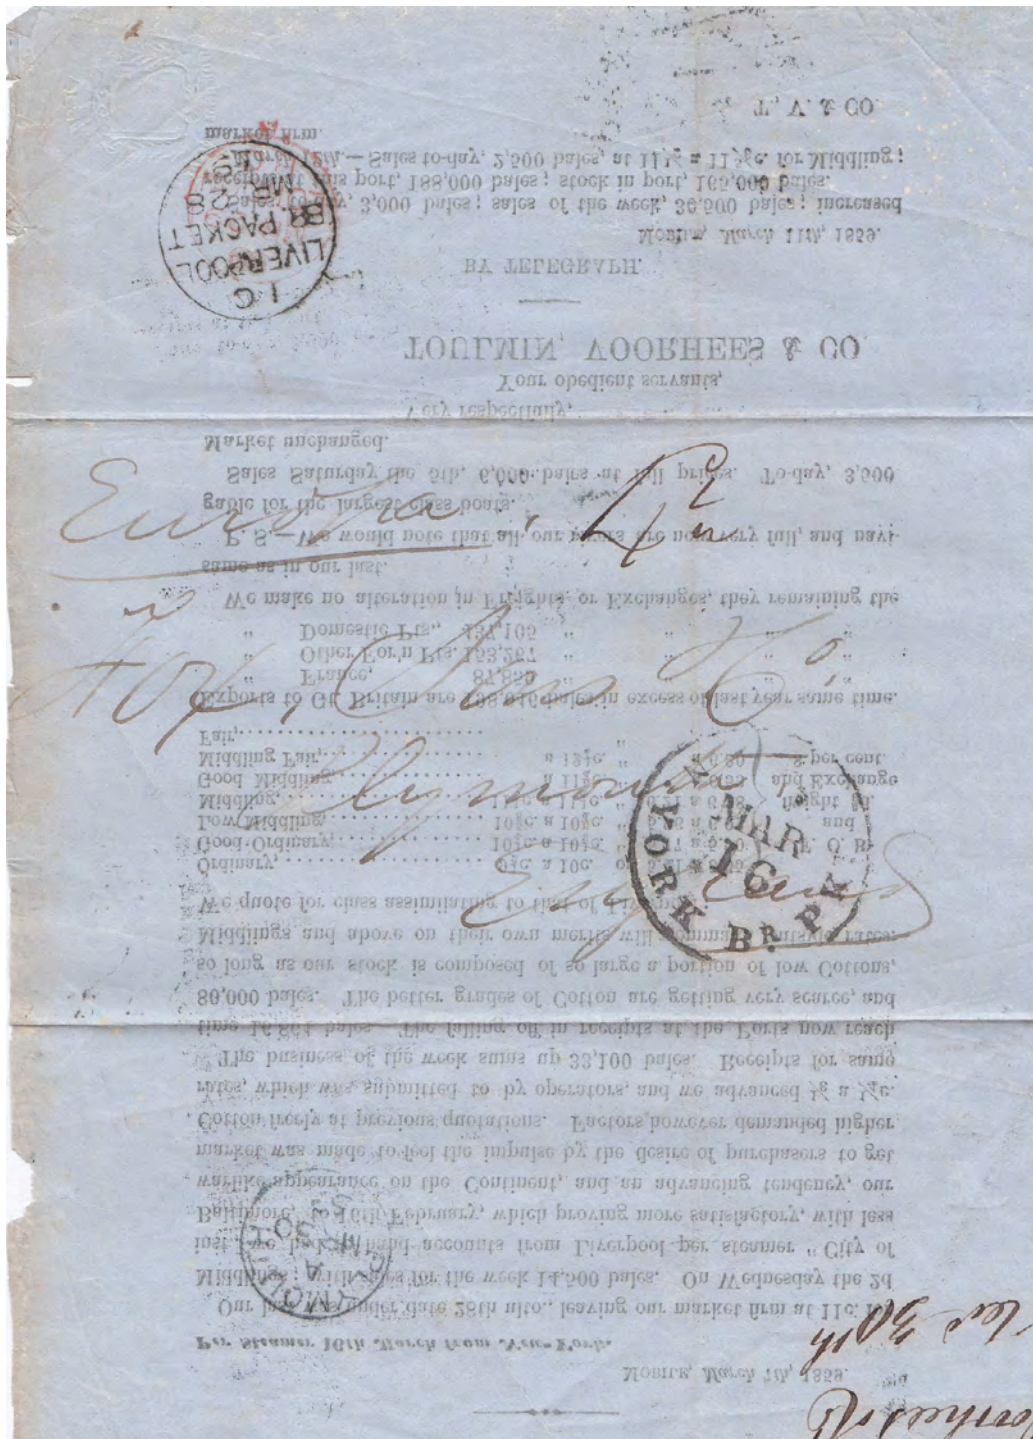 Europa
Fox, Sons & Co
Plymouth
England
YORK BR. PK
MAR
16
I G
LIVERPOOL
BR. PACKET
MR 28
59
PLYMOUTH
A
30
30th
MOBILE, March 7th, 1859.
Per Steamer 16th March from New-York.
Our last was under date 28th ulto., leaving our market firm at 11c.
Middlings; with sales for the week 14,500 bales. On Wednesday the 2d
inst., we had in hand accounts from Liverpool per steamer "City of
Baltimore," to 16th February, which proving more satisfactory, with less
warlike appearance on the Continent, and an advancing tendency, our
market was made to feel the impulse by the desire of purchasers to get
Cotton freely at previous quotations. Factors however demanded higher
rates, which was submitted to by operators, and we advanced ⅛ a ¼c.
The business of the week sums up 33,100 bales. Receipts for same
time 16,864 bales. The falling off in receipts at the Ports now reach
80,000 bales. The better grades of Cotton are getting very scarce, and
so long as our stock is composed of so large a portion of low Cottons,
Middlings and above on their own merits will command outside rates.
We quote for class assimilating to that of Liverpool:
Ordinary, a 10c.
Good Ordinary,
Low Middling, and
Middling, freight
Good Middling, and Exchange
Middling Fair, per cent.
Fair, " "
Exports to Gt. Britain are bales in excess of last year same time.
" France, 87,839 " " "
" Other For'n Pts. 153,267 " " "
" Domestic Pts., 437,105 " " "
We make no alteration in Freights or Exchanges, they remaining the
same as in our last.
P. S.—We would note that all our rivers are now very full, and navi-
gable for the largest class boats.
Sales Saturday the 5th, 6,000 bales at full prices. To-day, 3,500
Market unchanged.
Very respectfully,
Your obedient servants,
TOULMIN, VOORHEES & CO.
BY TELEGRAPH.
Mobile, March 11th, 1859.
Sales to-day, 3,000 bales; sales of the week, 36,500 bales; increased
receipts at this port, 188,000 bales; stock in port, 165,000 bales.
March 12th.—Sales to-day, 2,500 bales, at 11½ a 11⅝c. for Middling;
market firm.
T. V. & CO.